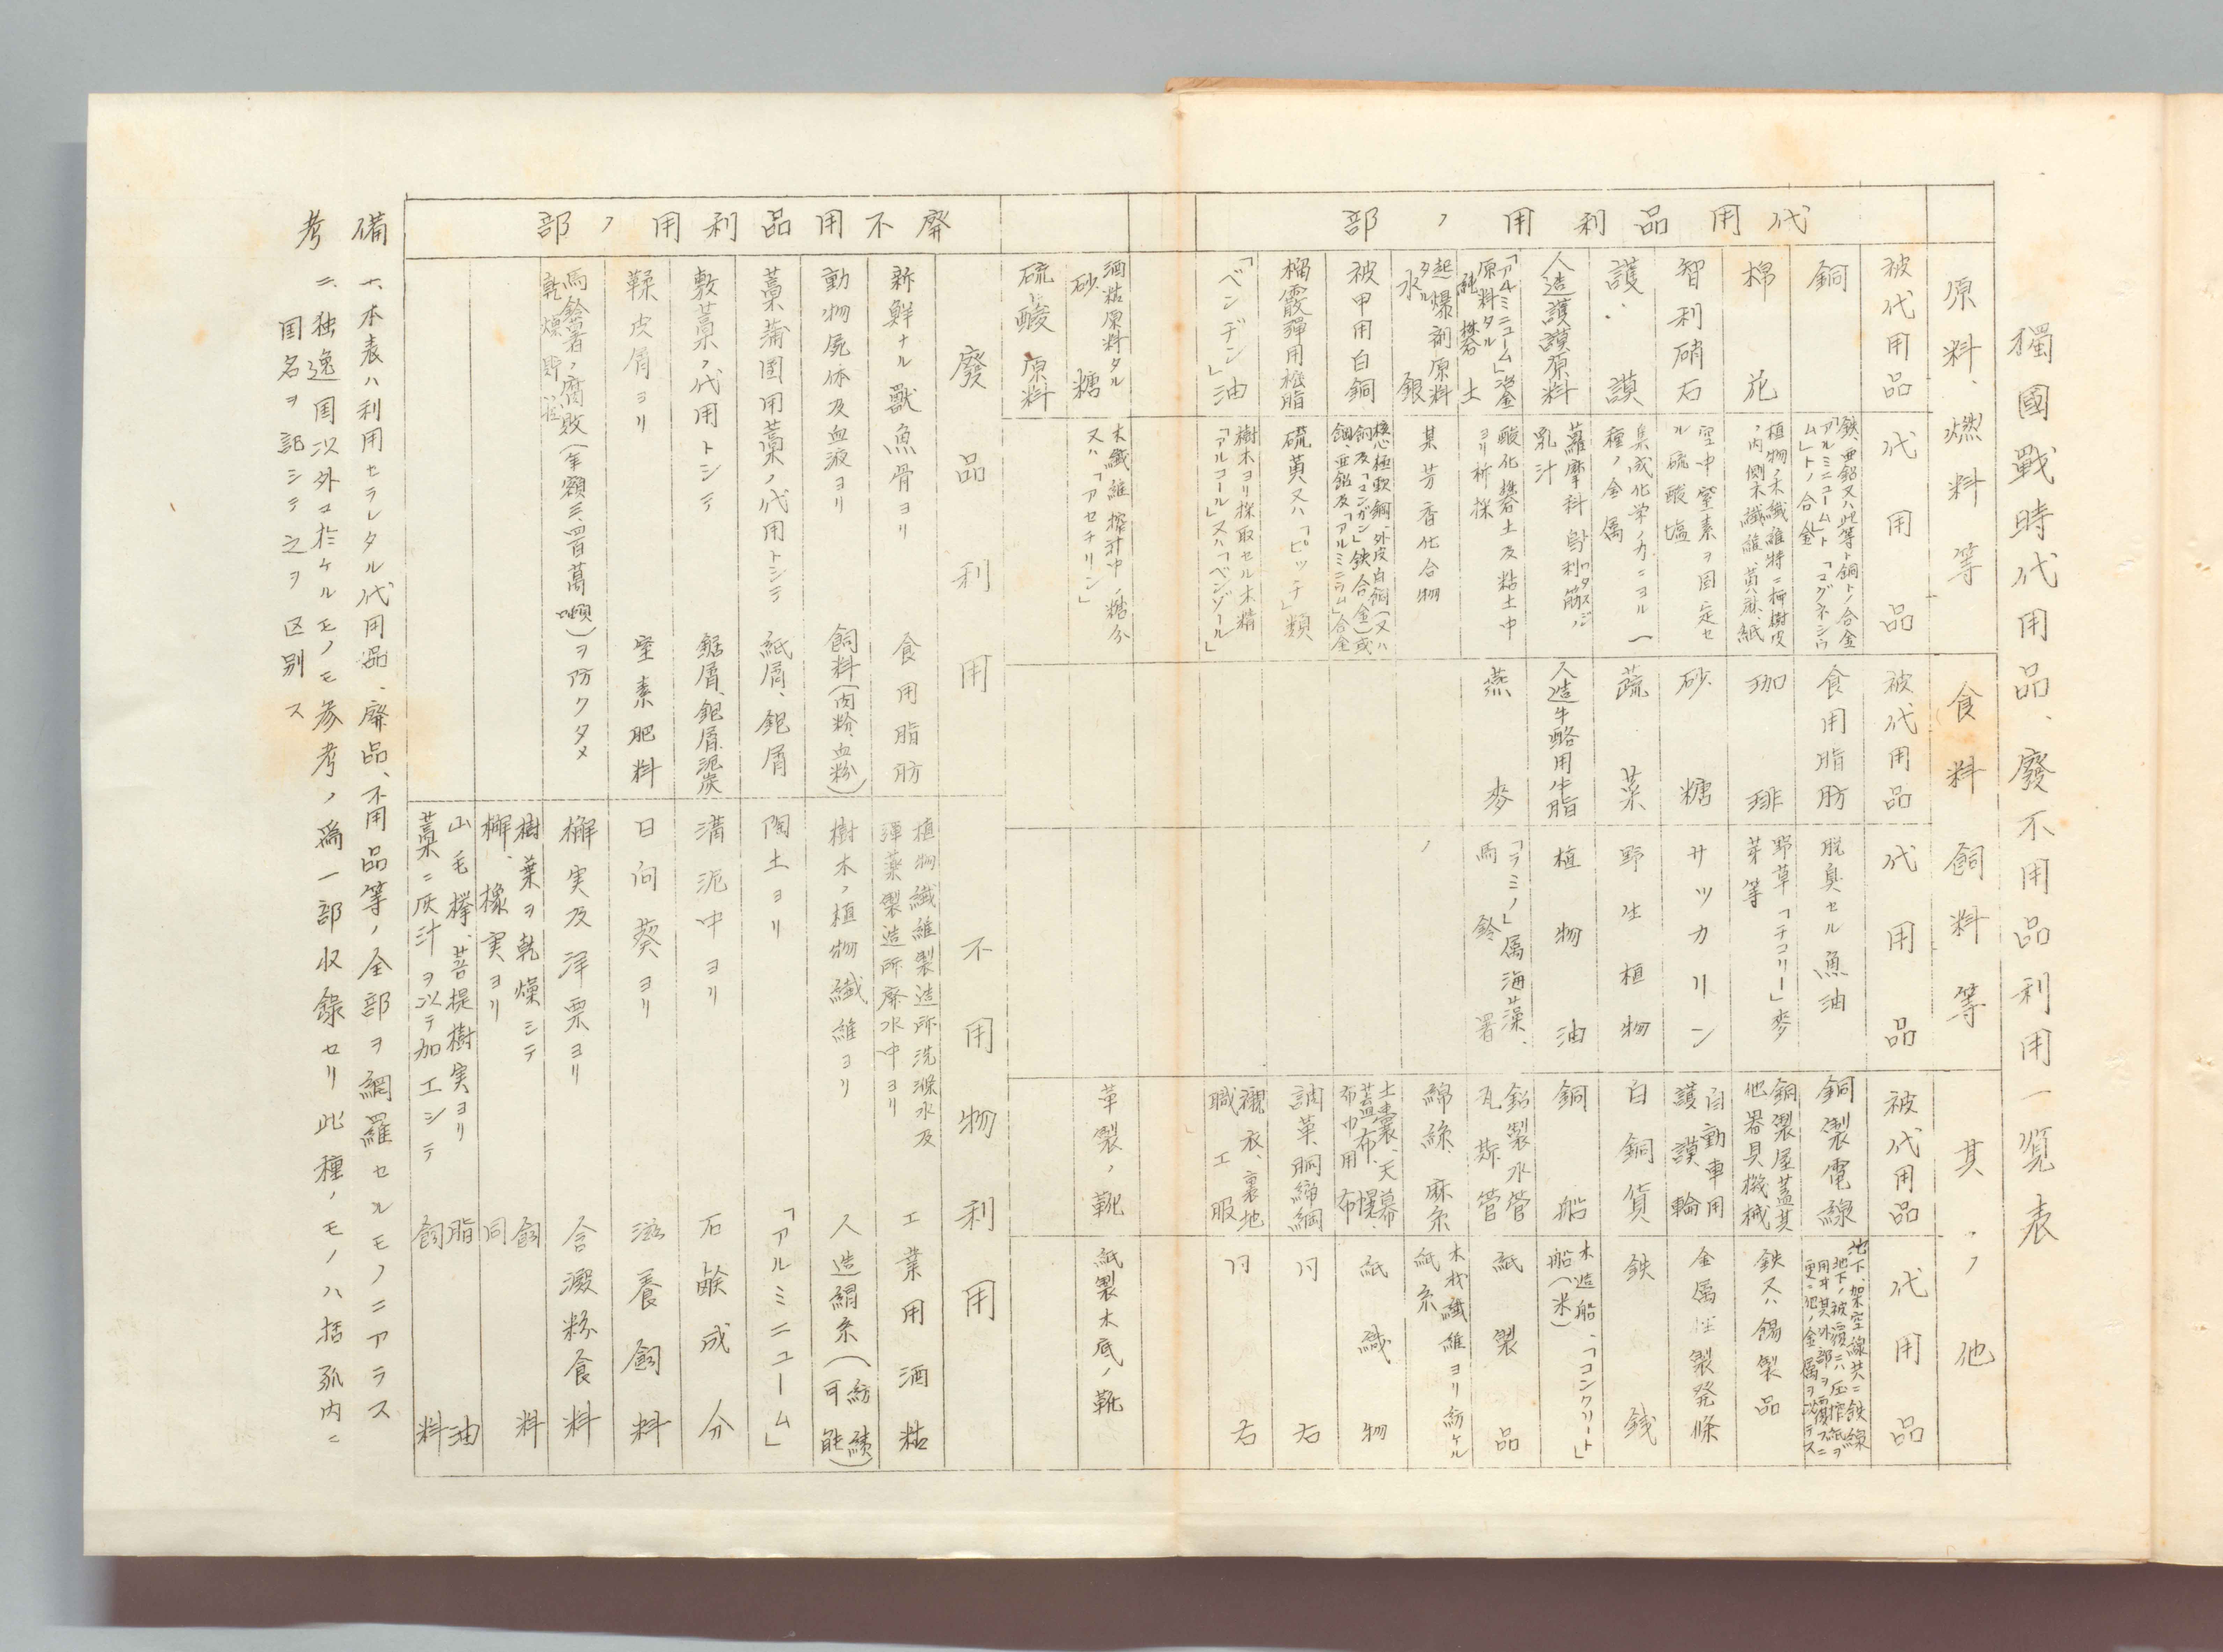 獨國戰時代用品、廢不用品利用一覧表
代用品利用ノ部
原料、燃料等
被代用品
代用品
銅
鉄、亜鉛又ハ此等ト銅トノ合金
「アルミニューム」ト「マグネシウム」トノ合金
棉花
植物ノ木纎維特ニ楊樹皮ノ内側木纎維、黄麻、紙
智利硝石
空中窒素ヲ固定セル硫酸塩
護謨
集成化学ノ力ニヨル一種ノ金属
人造護謨原料
蘿摩科
乳汁
「アルミニューム」鎔金原料タル純礬土
酸化礬土及粘土中ヨリ採
起爆剤原料タル水銀
某芳香化合物
被甲用白銅
硬心極軟鋼、外皮白銅(又ハ銅及「マンガン」鉄合金)或
鋼、亜鉛及「アルミニウム」合金
榴霰彈用樹脂
硫黄又ハ「ピッチ」類
「ベンヂン」油
樹木ヨリ採取セル木精
「アルコール」又ハ「ベンゾール」
酒精原料タル砂糖
木纎維搾汁中ノ糖分
又ハ「アセチリン」
硫酸原料
食料飼料等
被代用品
代用品
食用脂肪
脱臭セル魚油
珈琲
野草「チコリー」麥芽等
砂糖
サツカリン
蔬菜
野生植物
人造牛酪用牛脂
植物油
燕麥
「ラミノ」属海藻、
馬鈴署
其ノ他
被代用品
代用品
銅製電線
地下、架空線共ニ鉄線
地下ノ被覆ニハ圧搾紙ヲ
用ヰ其外部ヲ覆フニ
更ニ他ノ金属ヲ以テス
銅製屋蓋其他器具機械
鉄又ハ錫製品
自動車用護謨輪
金属性製発條
白銅貨
鉄銭
銅船
木造船、「コンクリート」船(米)
鉛製水管
瓦斯管
紙製品
綿絲、麻糸
木材纎維ヨリ紡ケル紙糸
土嚢、天幕、
蓋布、幌、
布巾用布
紙織物
調革、胴締綱
同右
襯衣、裏地
職工服
同右
革製ノ靴
紙製木底ノ靴
廃不用品利用ノ部
廢品利用
新鮮ナル獸魚骨ヨリ
食用脂肪
動物死体及血液ヨリ
飼料(肉粉、血粉)
藁蒲団用藁ノ代用トシテ
紙屑、鉋屑
敷藁ノ代用トシテ
鋸屑、鉋屑、泥炭
鞣皮屑ヨリ
窒素肥料
馬鈴署ノ腐敗(年額三、四百萬噸)ヲ防クタメ
乾燥
不用物利用
植物纎維製造所洗滌水及
彈薬製造所廃水中ヨリ
工業用酒精
樹木ノ植物纎維ヨリ
人造絹糸(紡績可能)
陶土ヨリ
「アルミニユーム」
溝泥中ヨリ
石鹸成分
日向葵ヨリ
滋養飼料
檞実及洋栗ヨリ
含澱粉食料
樹葉ヲ乾燥シテ
飼料
檞、橡実ヨリ
同
山毛欅、菩提樹実ヨリ
脂油
藁ニ灰汁ヲ以テ加工シテ
飼料
備考
一、本表ハ利用セラレタル代用品、廃品、不用品等ノ全部ヲ網羅セルモノニアラス
二、独逸国以外ニ於ケルモノモ参考ノ為一部収録セリ此種ノモノハ括弧内ニ
国名ヲ記シテ之ヲ区別ス